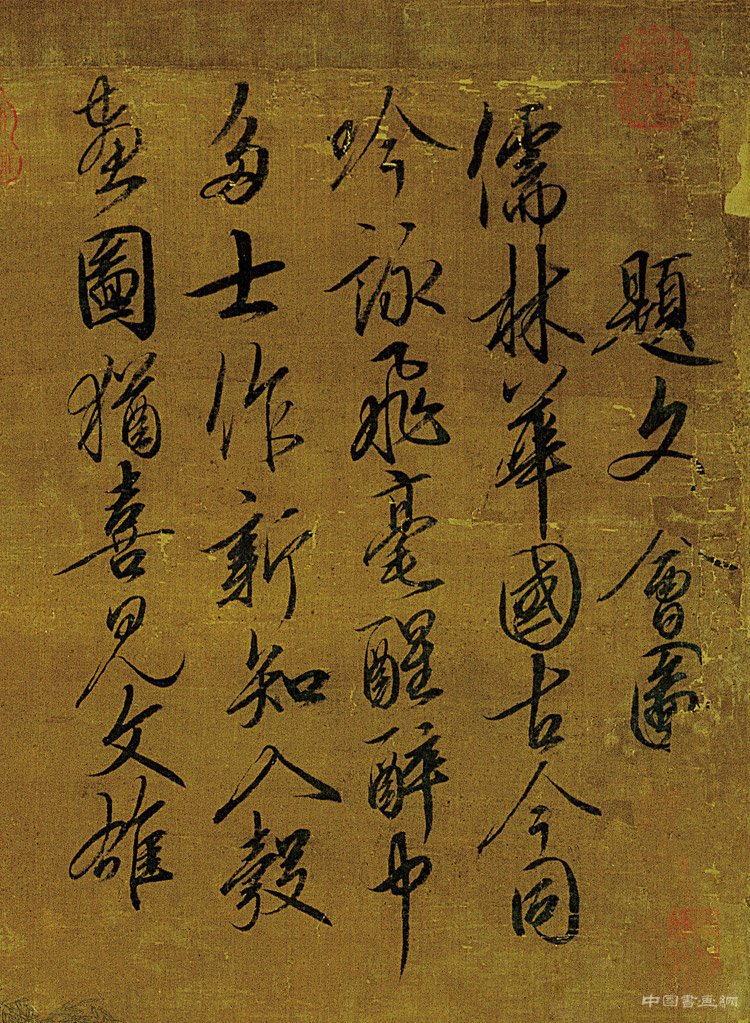 題文會圖
儒林華國古今同
吟詠飛毫醒醉中
多士作新知入彀
畫圖猶喜見文雄
中国書画網